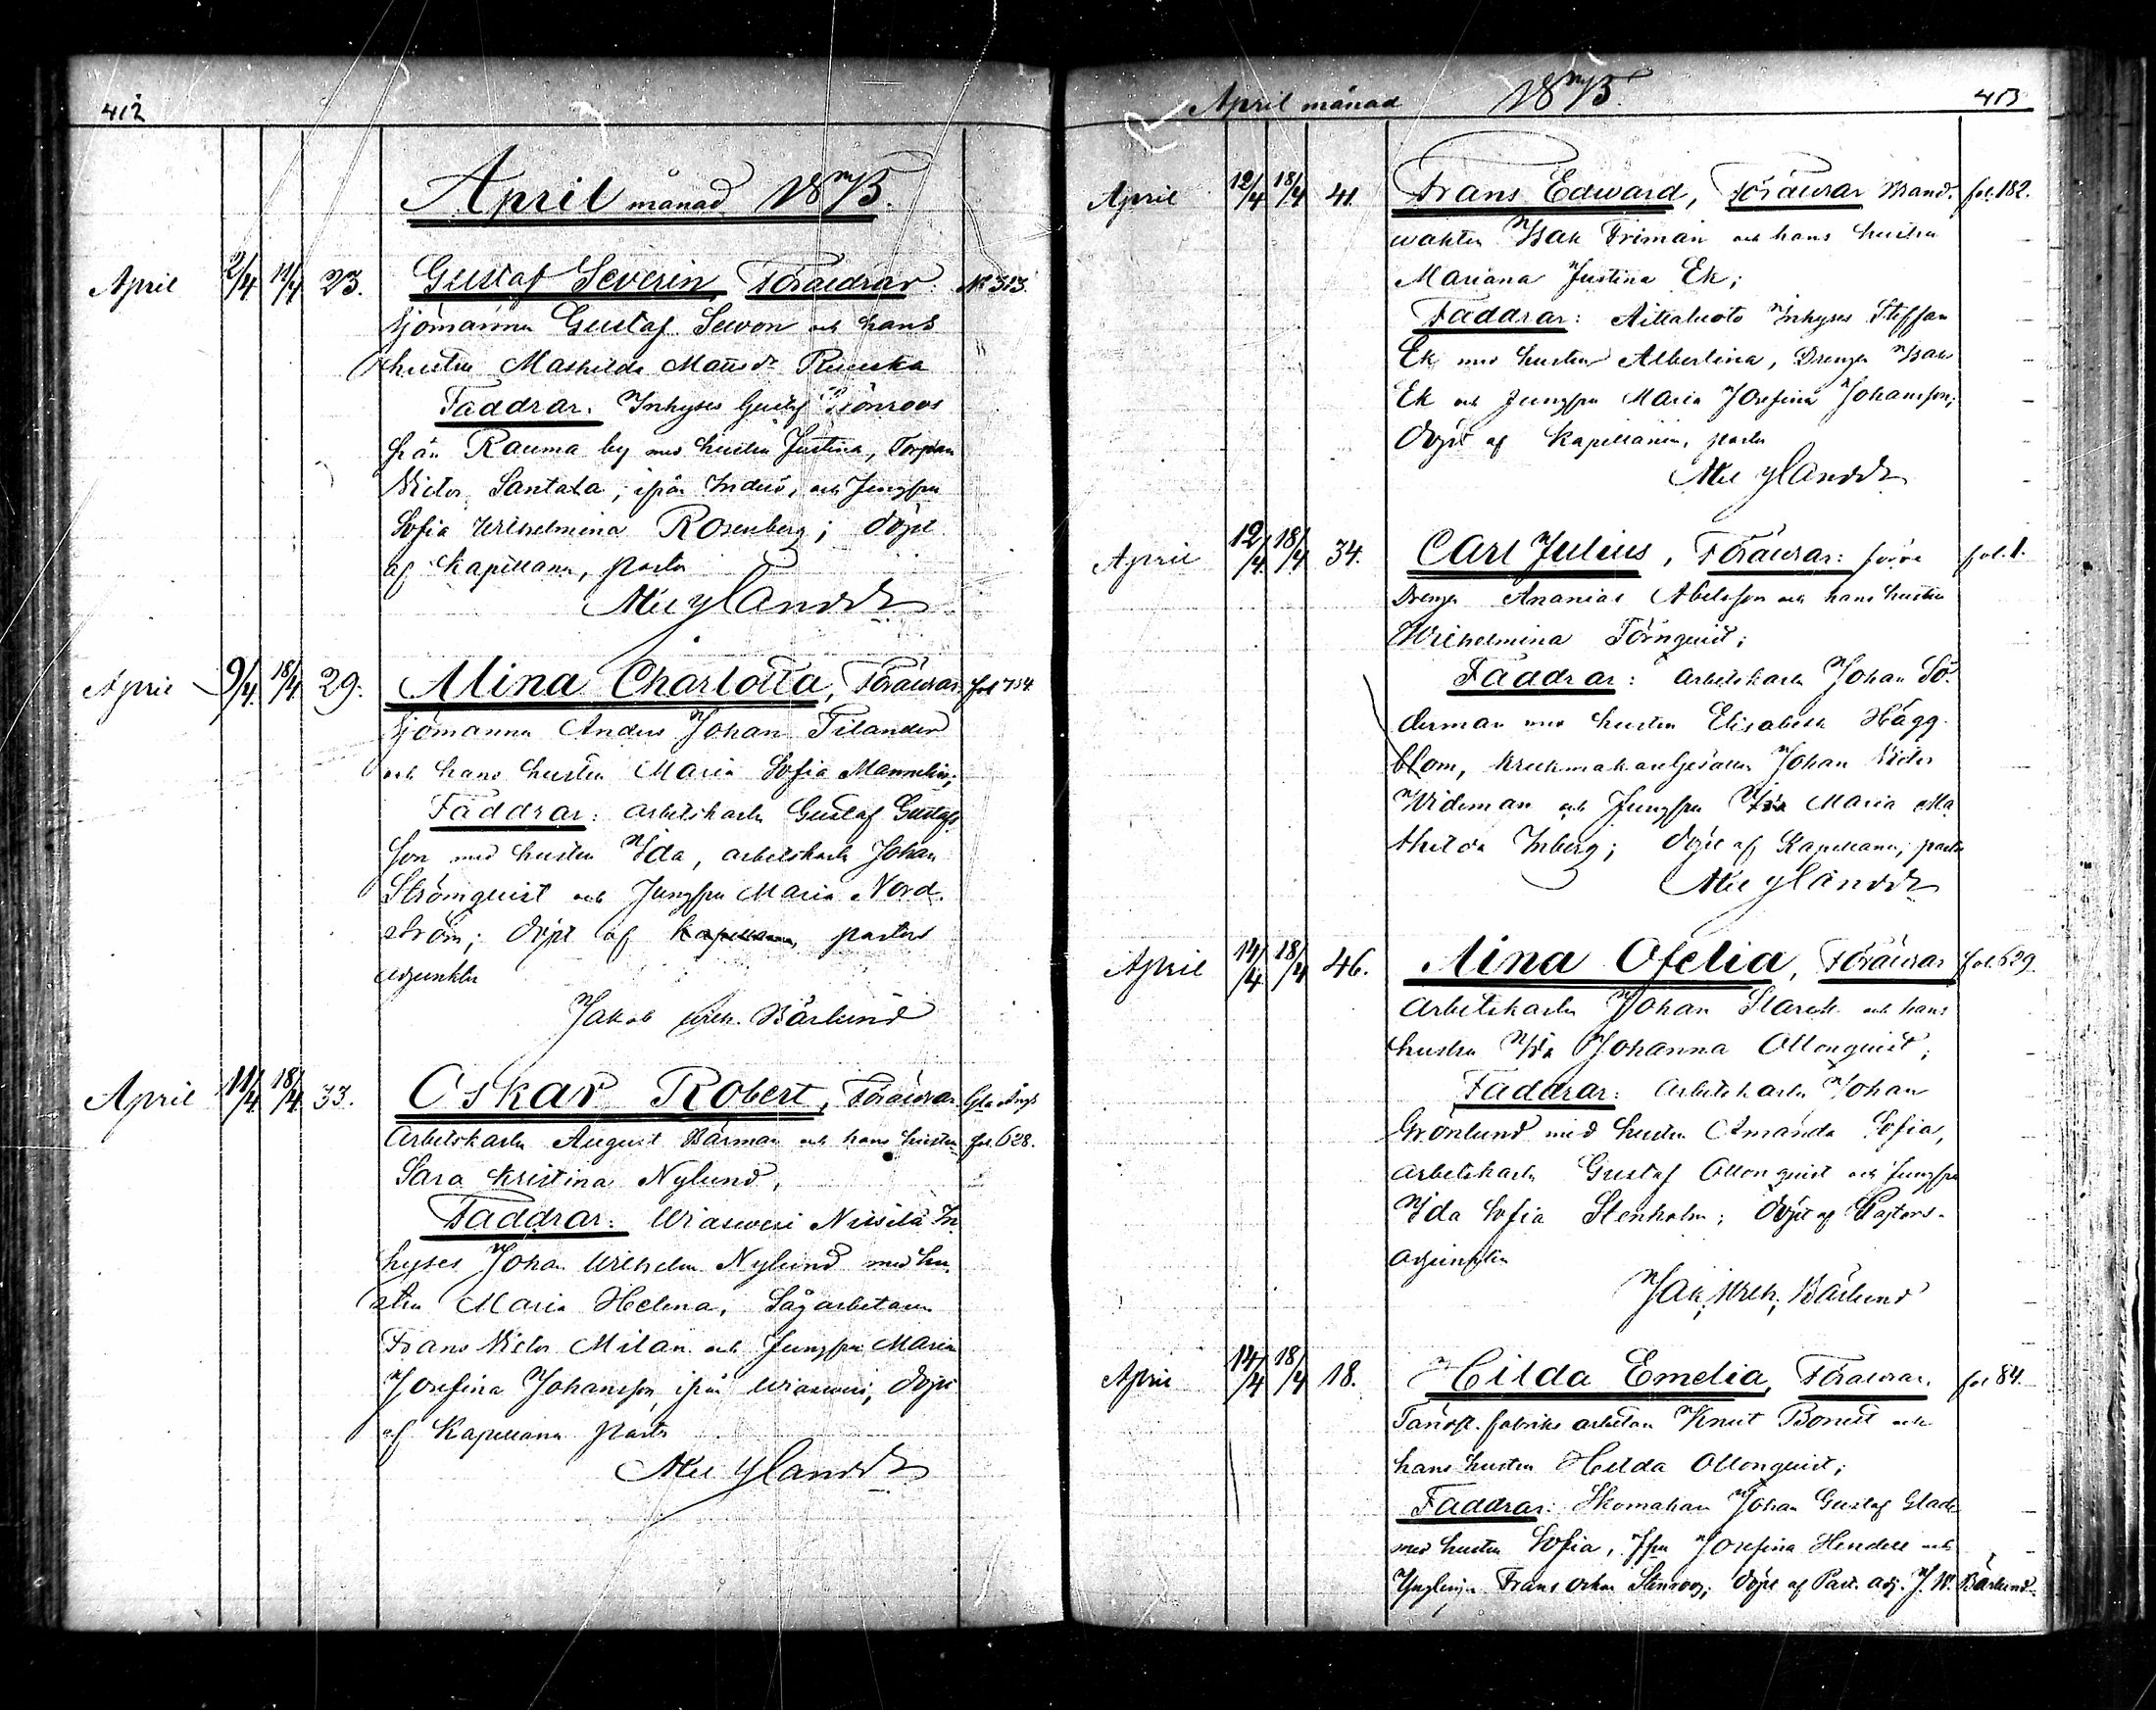 412
April månad 1875.
April 2/4 11/4 23. Gustaf Severin, Föräldrar No 313.
Sjömannen Gustaf Sevon och hans
hustru Mathilda Matsdr
Faddrar. Inhyses Gustaf Grönroos
från Rauma by med hustru Justina, Torparen
Victor Santala, ifrån Inderö, och Jungfru
Sofia Wilhelmina Rosenberg; döpt
af Kapellanen, pastor
April 9/4 18/4 29. Alina Charlotta, Föräldrar fol 754
Sjömannen Anders Johan Filander
och hans hustru Maria Sofia Mannelin;
Faddrar: arbetskarln Gustaf Gustafs
son med hustru Ida, arbetskarln Johan
Strömquist och Jungfru Maria Nord-
ström; döpt af Kapellanen, pastors
adjunkten
Jakob Wilh. Bärlund
April 11/4 18/4 33. Oskar Robert, Föräldrar
Arbetskarln August Bärman och hans hustru fol. 628.
Sara Kristina Nylund,
Faddrar: Wiasvesi Nissilä In-
hyses Johan Wilhelm Nylund med hu-
stru Maria Helena, Sågarbetaren
Frans Victor Milan och Jungfru Maria
Josefina Johansson ifrån Wiasvesi, döpt
af Kapellanen Pastor
April månad 1875. 413
April 12/4 18/4 41. Frans Edward, Föräldrar Brand- fol. 182.
vakten Isak Friman och hans hustru
Mariana Justina Ek;
Faddrar: Aittaluoto Inhyses Steffan
Ek med hustru Albertina, Drengen Isak
Ek och Jungfru Maria Josefina Johansson;
döpt af Kapellanen, pastor
April 12/4 18/4 34. Carl Julius, Föräldrar: förre fol. 1.
Drengen Ananias Abelsson och hans hustru
Wilhelmina Törnquist;
Faddrar: Arbetskarln Johan Sö-
derman med hustru Elisabeth Hägg-
blom, Krukmakaregesällen Johan Victor
Wideman och Jungfru Ida Maria Ma-
thilda Inberg; döpt af Kapellanen, pastor
April 14/4 18/4 46. Aina Ofelia, Föräldrar fol. 629.
Arbetskarln Johan Starck och hans
hustru Ida Johanna Ollonquist;
Faddrar: Arbetskarln Johan
Grönlund med hustru Amanda Sofia,
arbetskarln Gustaf Ollonquist och Jungfru
Ida Sofia Stenholm; döpt af Pastors-
adjunkten
Jak. Wilh. Bärlund
April 14/4 18/4 18. Hilda Emelia, Föräldrar. fol 84.
Tändst. fabriks arbetaren Knut Bonest och
hans hustru Hilda Ollonquist;
Faddrar: Skomakaren Johan Gustaf Glad
med hustru Sofia, Jfru Josefina Hendell och
Ynglingen Frans Oskar Stenroos; döpt af Past. adj. J. W. Bärlund.